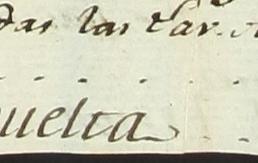 das las car
uelta